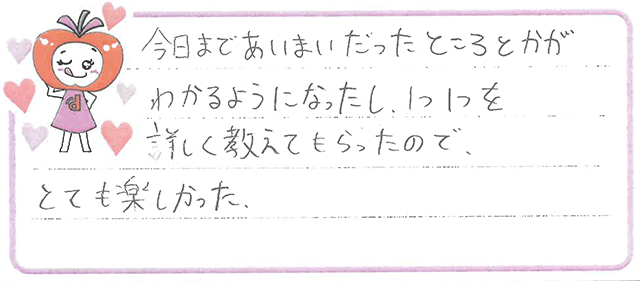 今日まであいまいだったところとかが
わかるようになったし、1つ1つを
詳しく教えてもらったので、
とても楽しかった、